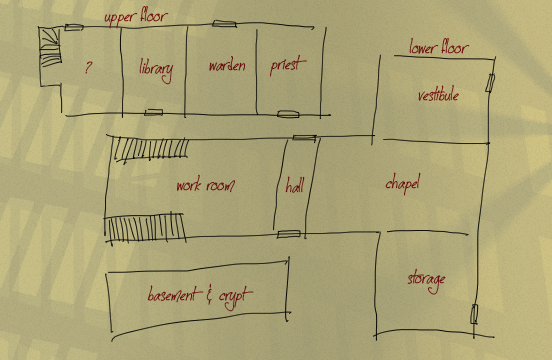 upper floor
? library warden priest
lower floor
vestibule
work room hall chapel
basement & crypt storage